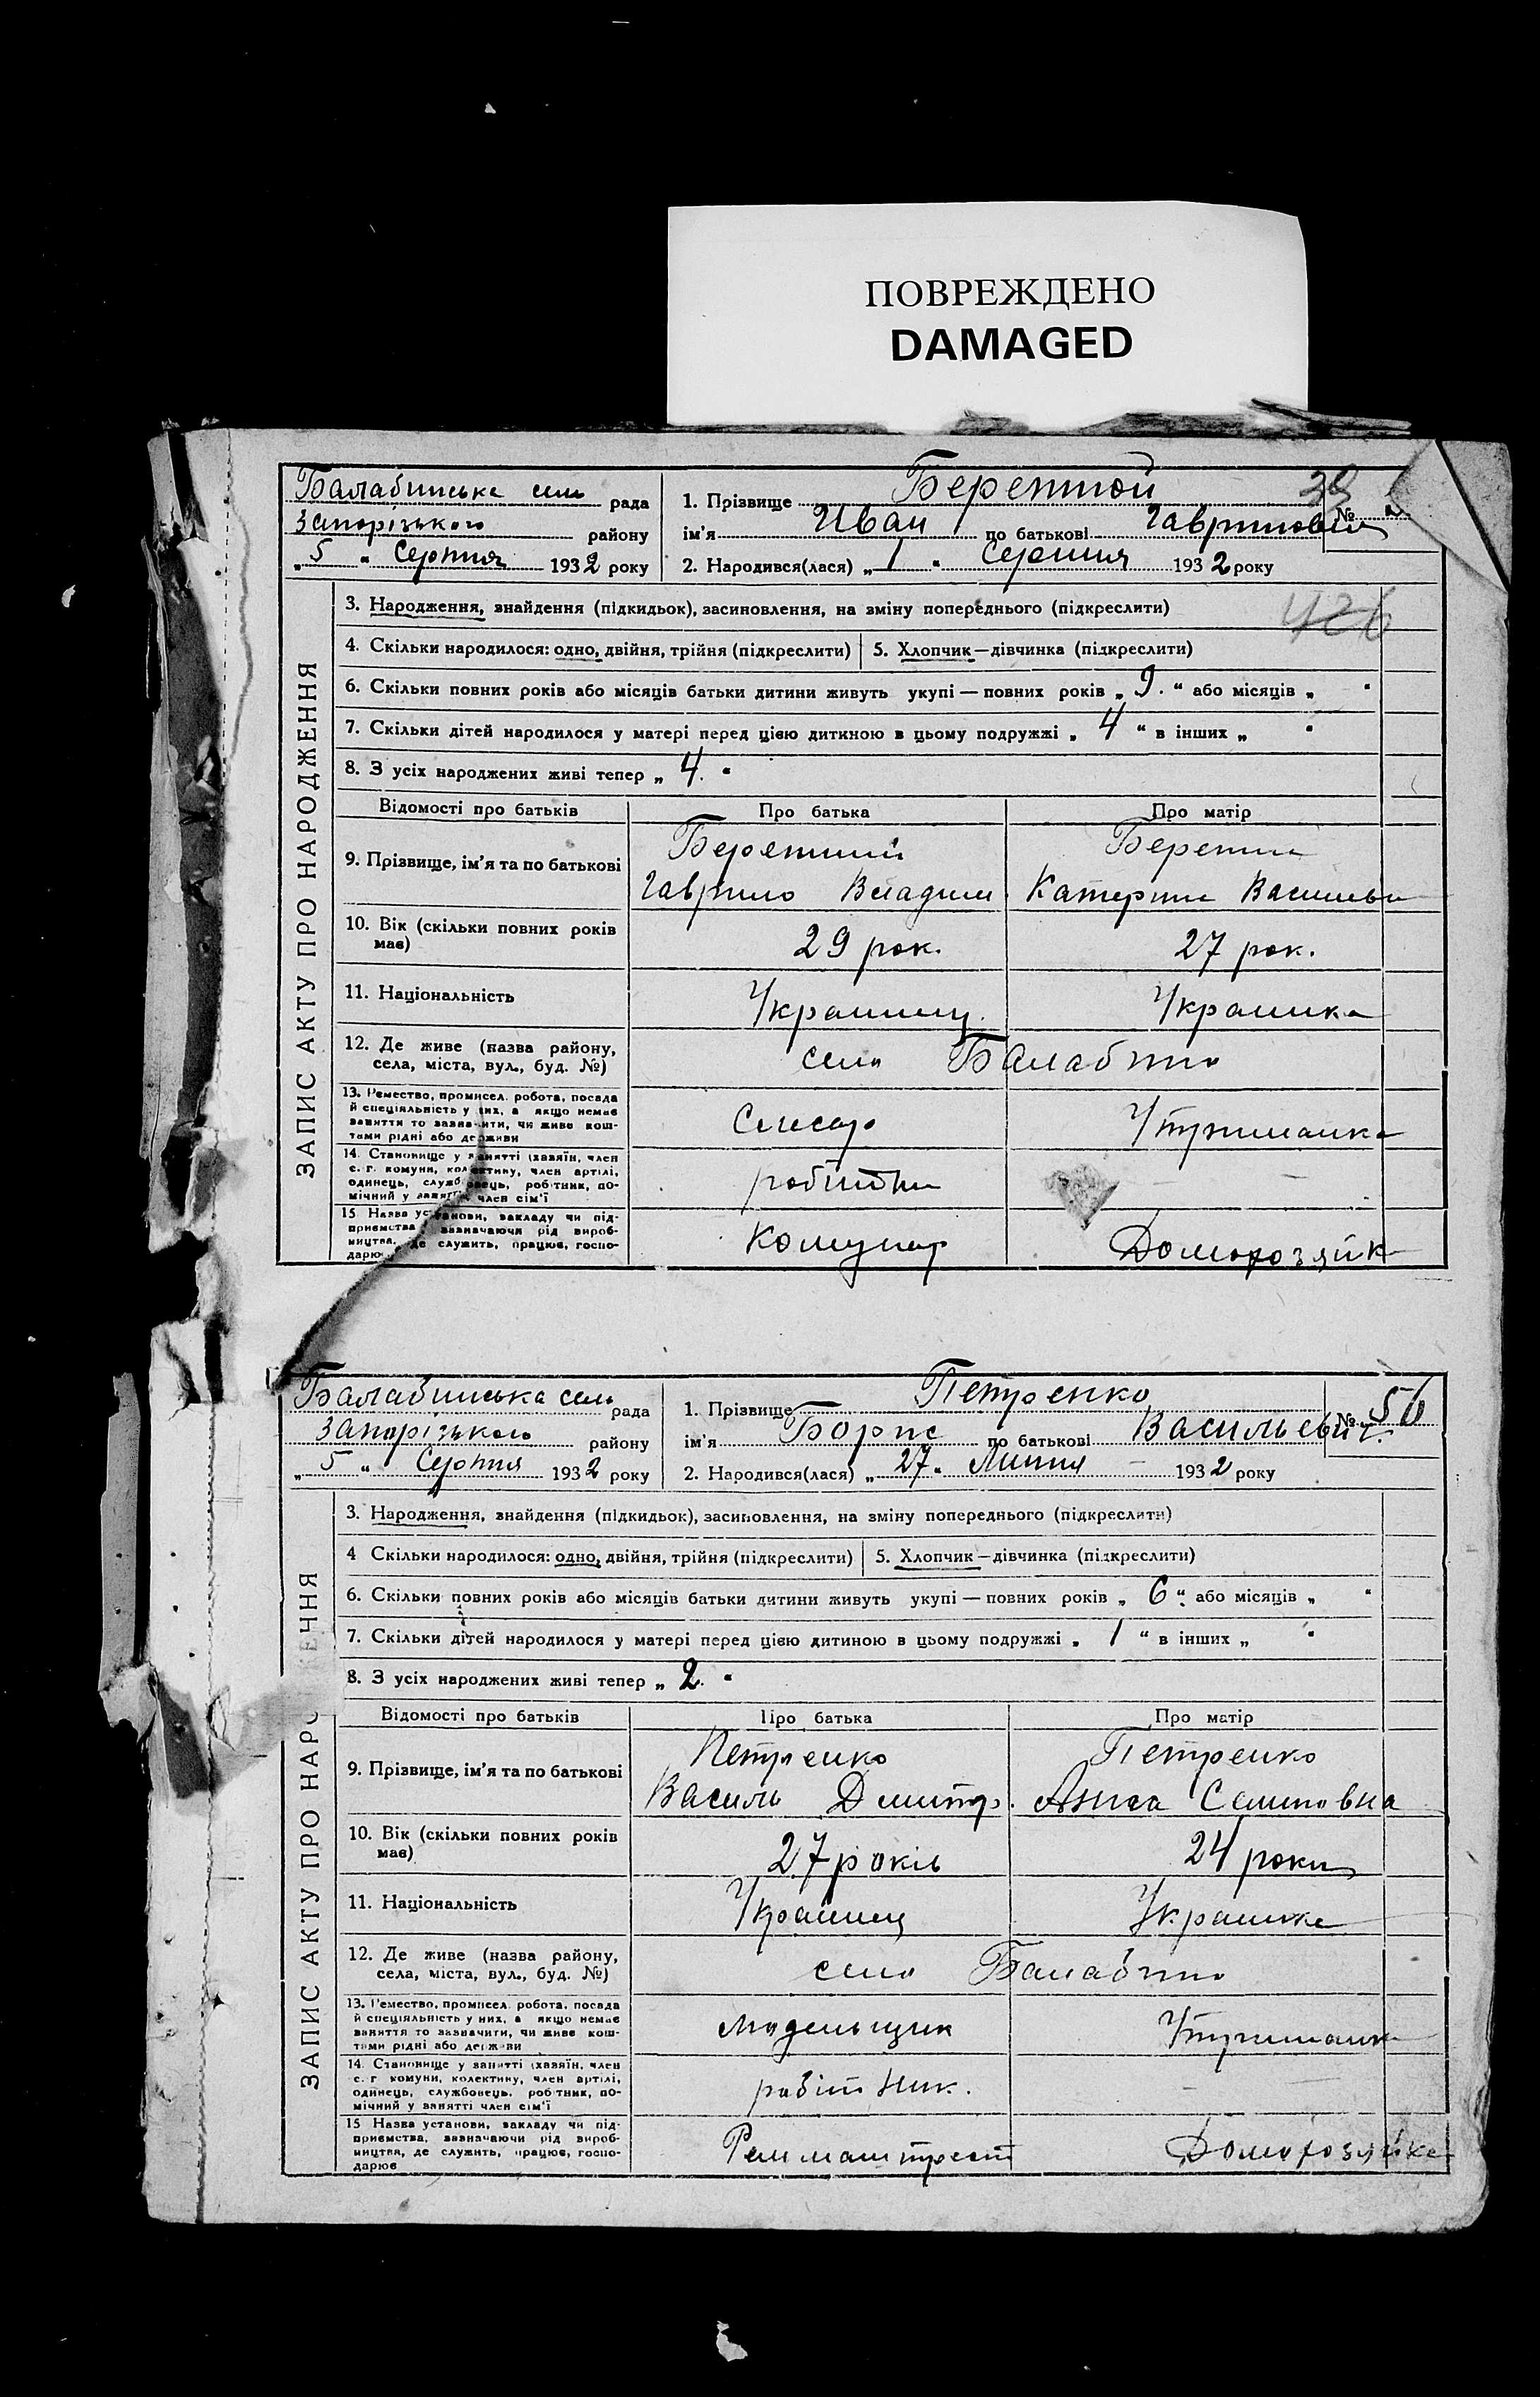 ПОВРЕЖДЕНО
DAMAGED
Балабинська сель рада
Запорізького району
„ 5 “ Серпня 1932 року
1. Прізвище
№
ім'я Иван по батькові
2. Народився(лася) „ 1 “ Серпня 1932 року
ЗАПИС АКТУ ПРО НАРОДЖЕННЯ
3. Народження, знайдення (підкидьок), засиновлення, на зміну попереднього (підкреслити)
426
4. Скільки народилося: одно, двійня, трійня (підкреслити)
5. Хлопчик—дівчинка (підкреслити)
6. Скільки повних років або місяців батьки дитини живуть укупі — повних років „ 9. “ або місяців „ “
7. Скільки дітей народилося у матері перед цією дитиною в цьому подружжі „ 4 “ в інших „ “
8. З усіх народжених живі тепер „ 4. “
Відомості про батьків
Про батька
Про матір
9. Прізвище, ім'я та по батькові
Гаврило Владим.
Катерина Васильевн
10. Вік (скільки повних років має)
29 рок.
27 рок.
11. Національність
Українец.
Українка
12. Де живе (назва району, села, міста, вул., буд. №)
село Балабино
13. Ремество, промисел, робота, посада й спеціяльність у них, а якщо немає заняття то зазначити, чи живе коштами рідні або держави
Слесар
Утриманка
14. Становище у занятті (хазяїн, член с. г. комуни, колективу, член артілі, одинець, службовець, робітник, помічний у занятті член сім'ї
робітни
15 Назва установи, закладу чи підприємства, зазначаючи рід виробництва, де служить, працює, господарює
Комунар
Домохозяйк
Балабинська сель рада
Запорізького району
„ 5 “ Серпня 1932 року
1. Прізвище Петренко
№ 56
ім'я Борис по батькові Васильевич.
2. Народився(лася) „ 27 “ Липня 1932 року
ЗАПИС АКТУ ПРО НАРО ЕННЯ
3. Народження, знайдення (підкидьок), засиновлення, на зміну попереднього (підкреслити)
4 Скільки народилося: одно, двійня, трійня (підкреслити)
5. Хлопчик—дівчинка (підкреслити)
6. Скільки повних років або місяців батьки дитини живуть укупі — повних років „ 6 “ або місяців „ “
7. Скільки дітей народилося у матері перед цією дитиною в цьому подружжі „ 1 “ в інших „ “
8. З усіх народжених живі тепер „ 2. “
Відомості про батьків
Про батька
Про матір
9. Прізвище, ім'я та по батькові
Петренко
Василь Дмитр.
Петренко
Анна Семиновна
10. Вік (скільки повних років має)
27 років
24 роки
11. Національність
Українец
Українка
12. Де живе (назва району, села, міста, вул., буд. №)
село Балабино
13. Ремество, промисел, робота, посада й спеціяльність у них, а якщо немає заняття то зазначити, чи живе коштами рідні або держави
модельщик
Утриманка
14. Становище у занятті (хазяїн, член с. г. комуни, колективу, член артілі, одинець, службовець, робітник, помічний у занятті член сім'ї
робітник.
15 Назва установи, закладу чи підприємства, зазначаючи рід виробництва, де служить, працює, господарює
Реммаштрест
Домохозяйка